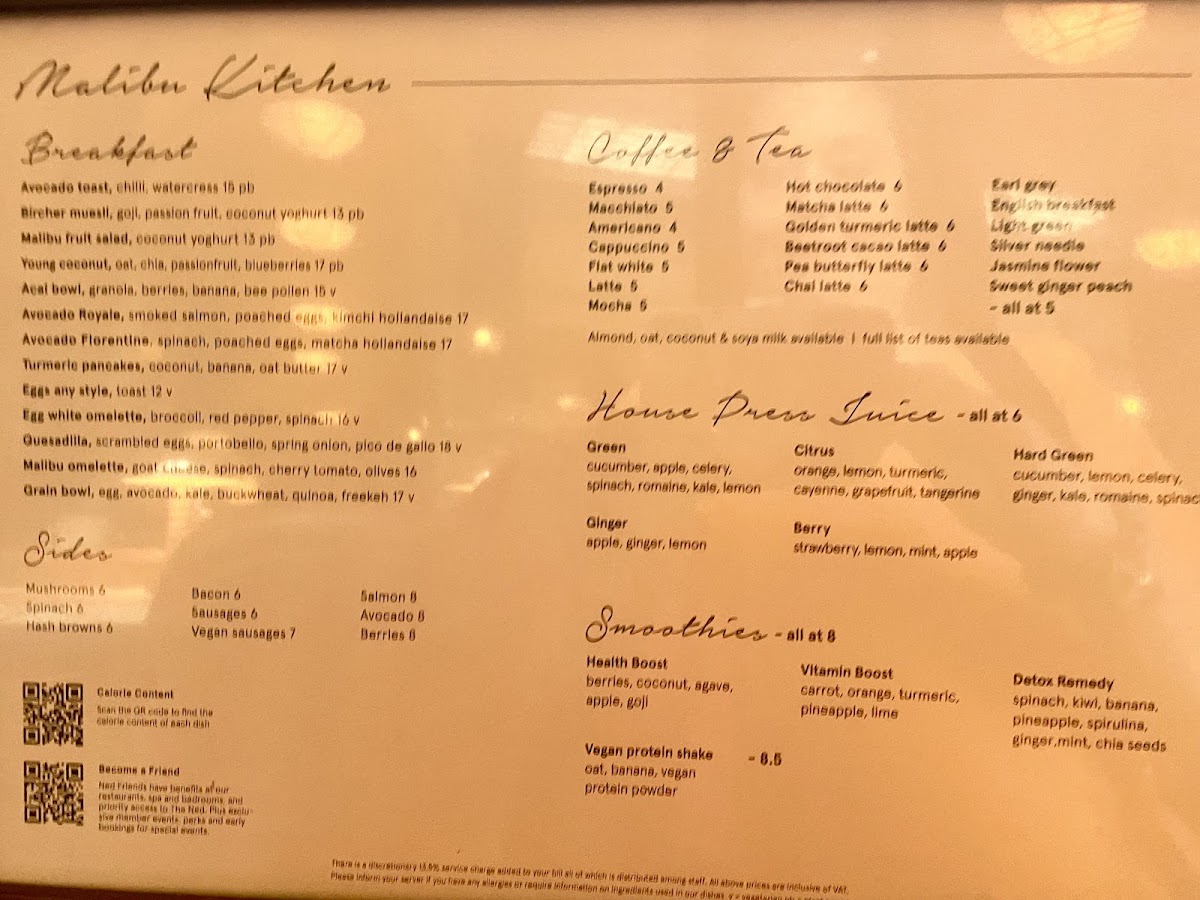 Malibu Kitchen
Breakfast
Avocado toast, chilli, watercress 15 pb
Bircher muesli, goji, passion fruit, coconut yoghurt 13 pb
Malibu fruit salad, coconut yoghurt 13 pb
Young coconut, oat, chia, passionfruit, blueberries 17 pb
Acai bowl, granola, berries, banana, bee pollen 15 v
Avocado Royale, smoked salmon, poached eggs, kimchi hollandaise 17
Avocado Florentine, spinach, poached eggs, matcha hollandaise 17
Turmeric pancakes, coconut, banana, oat butter 17 v
Eggs any style, toast 12 v
Egg white omelette, broccoli, red pepper, spinach 16 v
Quesadilla, scrambled eggs, portobello, spring onion, pico de gallo 18 v
Malibu omelette, goat cheese, spinach, cherry tomato, olives 16
Grain bowl, egg, avocado, kale, buckwheat, quinoa, freekeh 17 v
Sides
Mushrooms 6
Spinach 6
Hash browns 6
Bacon 6
Sausages 6
Vegan sausages 7
Salmon 8
Avocado 8
Berries 8
Calorie Content
Scan the QR code to find the
calorie content of each dish
Become a Friend
Ned Friends have benefits at our
restaurants, spa and bedrooms, and
priority access to The Ned. Plus exclu-
sive member events, perks and early
bookings for special events.
Coffee & Tea
Espresso 4
Macchiato 5
Americano 4
Cappuccino 5
Flat white 5
Latte 5
Mocha 5
Hot chocolate 6
Matcha latte 6
Golden turmeric latte 6
Beetroot cacao latte 6
Pea butterfly latte 6
Chai latte 6
Earl grey
English breakfast
Light green
Silver needle
Jasmine flower
Sweet ginger peach
- all at 5
Almond, oat, coconut & soya milk available | full list of teas available
House Press Juice - all at 6
Green
cucumber, apple, celery,
spinach, romaine, kale, lemon
Citrus
orange, lemon, turmeric,
cayenne, grapefruit, tangerine
Hard Green
cucumber, lemon, celery,
ginger, kale, romaine, spinac
Ginger
apple, ginger, lemon
Berry
strawberry, lemon, mint, apple
Smoothies - all at 8
Health Boost
berries, coconut, agave,
apple, goji
Vitamin Boost
carrot, orange, turmeric,
pineapple, lime
Detox Remedy
spinach, kiwi, banana,
pineapple, spirulina,
ginger,mint, chia seeds
Vegan protein shake - 8.5
oat, banana, vegan
protein powder
There is a discretionary service charge added to your bill all of which is distributed among staff. All above prices are inclusive of VAT.
Please inform your server if you have any allergies or require information on ingredients used in our dishes.